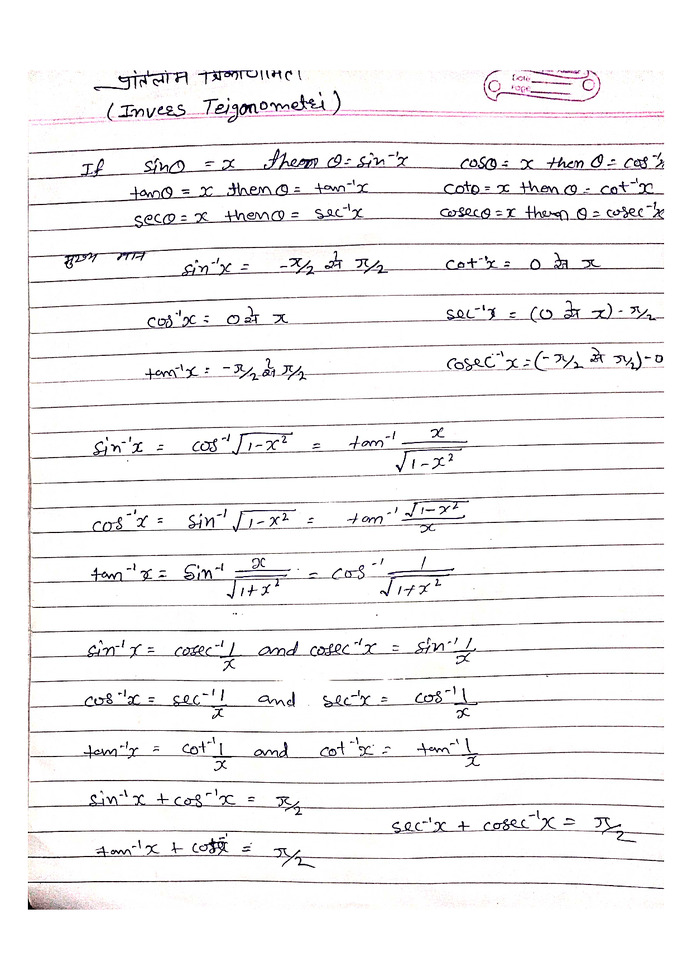 प्रतिलोम त्रिकोणमिति
(Invers Teigonometri)
Date
Page
If sinθ = x then θ = sin⁻¹x cosθ = x then θ = cos⁻¹x
tanθ = x then θ = tan⁻¹x cotθ = x then θ = cot⁻¹x
secθ = x then θ = sec⁻¹x cosecθ = x then θ = cosec⁻¹x
मुख्य मान sin⁻¹x = -π/2 से π/2 cot⁻¹x = 0 से π
cos⁻¹x = 0 से π sec⁻¹x = (0 से π) - π/2
tan⁻¹x = -π/2 से π/2 cosec⁻¹x = (-π/2 से π/2) - 0
sin⁻¹x = cos⁻¹ √(1-x²) = tan⁻¹ x/√(1-x²)
cos⁻¹x = sin⁻¹ √(1-x²) = tan⁻¹ √(1-x²)/x
tan⁻¹x = Sin⁻¹ x/√(1+x²) = cos⁻¹ 1/√(1+x²)
sin⁻¹x = cosec⁻¹ 1/x and cosec⁻¹x = sin⁻¹ 1/x
cos⁻¹x = sec⁻¹ 1/x and sec⁻¹x = cos⁻¹ 1/x
tan⁻¹x = cot⁻¹ 1/x and cot⁻¹x = tan⁻¹ 1/x
sin⁻¹x + cos⁻¹x = π/2
sec⁻¹x + cosec⁻¹x = π/2
tan⁻¹x + cot⁻¹x = π/2